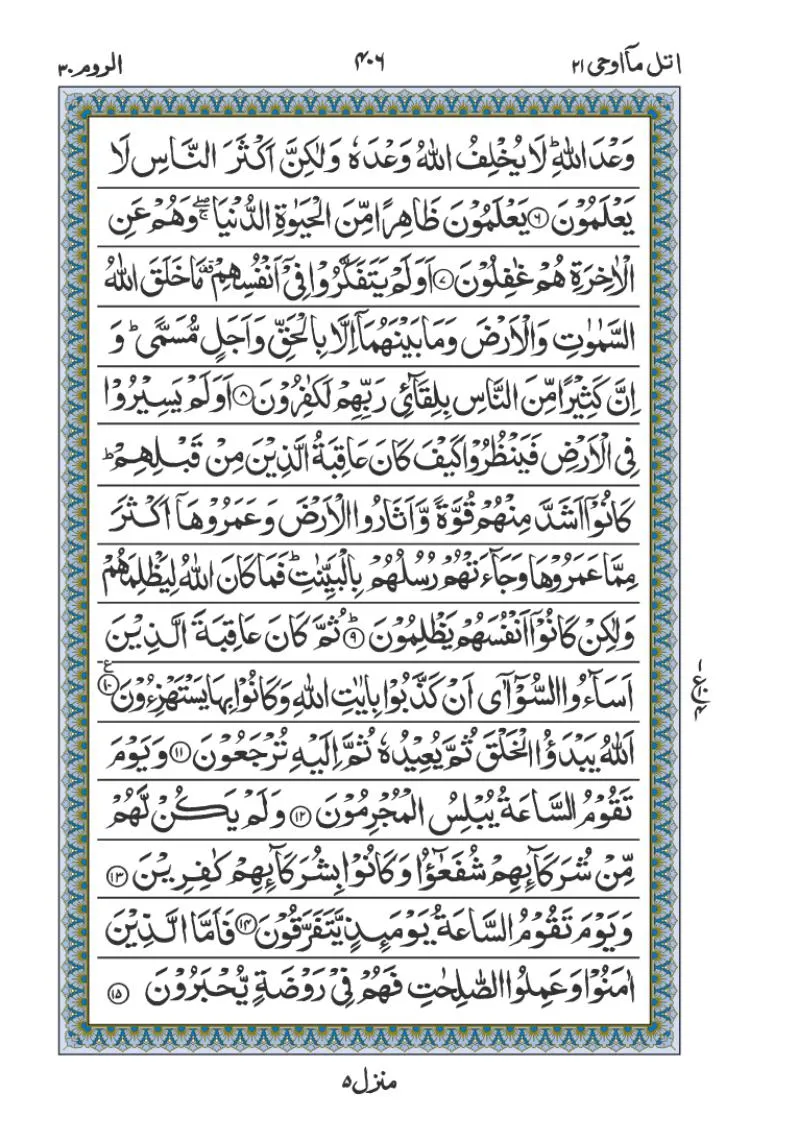 اتل مآ اوحی ۲۱
۴۰۶
الروم ۳۰
وَعۡدَ اللّٰهِ‌ؕ لَا يُخۡلِفُ اللّٰهُ وَعۡدَهٗ وَلٰـكِنَّ اَكۡثَرَ النَّاسِ لَا
يَعۡلَمُوۡنَ‏ ﴿۶﴾ يَعۡلَمُوۡنَ ظَاهِرًا مِّنَ الۡحَيٰوةِ الدُّنۡيَا ۖۚ وَهُمۡ عَنِ
الۡاٰخِرَةِ هُمۡ غٰفِلُوۡنَ‏ ﴿۷﴾ اَوَلَمۡ يَتَفَكَّرُوۡا فِىۡۤ اَنۡفُسِهِمۡ مَا خَلَقَ اللّٰهُ
السَّمٰوٰتِ وَالۡاَرۡضَ وَمَا بَيۡنَهُمَاۤ اِلَّا بِالۡحَقِّ وَاَجَلٍ مُّسَمًّى‌ؕ وَ
اِنَّ كَثِيۡرًا مِّنَ النَّاسِ بِلِقَآئِ رَبِّهِمۡ لَـكٰفِرُوۡنَ‏ ﴿۸﴾ اَوَلَمۡ يَسِيۡرُوۡا
فِى الۡاَرۡضِ فَيَنۡظُرُوۡا كَيۡفَ كَانَ عَاقِبَةُ الَّذِيۡنَ مِنۡ قَبۡلِهِمۡ‌ؕ
كَانُوۡۤا اَشَدَّ مِنۡهُمۡ قُوَّةً وَّاَثَارُوا الۡاَرۡضَ وَعَمَرُوۡهَاۤ اَكۡثَرَ
مِمَّا عَمَرُوۡهَا وَجَآءَتۡهُمۡ رُسُلُهُمۡ بِالۡبَيِّنٰتِ‌ؕ فَمَا كَانَ اللّٰهُ لِيَظۡلِمَهُمۡ
وَلٰـكِنۡ كَانُوۡۤا اَنۡفُسَهُمۡ يَظۡلِمُوۡنَؕ‏ ﴿۹﴾ ثُمَّ كَانَ عَاقِبَةَ الَّذِيۡنَ
اَسَآءُوا السُّوۡٓآٰى اَنۡ كَذَّبُوۡا بِاٰيٰتِ اللّٰهِ وَكَانُوۡا بِهَا يَسۡتَهۡزِءُوۡنَ ﴿۱۰﴾ ع
اَللّٰهُ يَـبۡدَؤُا الۡخَـلۡقَ ثُمَّ يُعِيۡدُهٗ ثُمَّ اِلَيۡهِ تُرۡجَعُوۡنَ‏ ﴿۱۱﴾ وَيَوۡمَ
تَقُوۡمُ السَّاعَةُ يُبۡلِسُ الۡمُجۡرِمُوۡنَ‏ ﴿۱۲﴾ وَلَمۡ يَكُنۡ لَّهُمۡ
مِّنۡ شُرَكَآٮِٕهِمۡ شُفَعٰٓؤُا وَكَانُوۡا بِشُرَكَآٮِٕهِمۡ كٰفِرِيۡنَ‏ ﴿۱۳﴾
وَيَوۡمَ تَقُوۡمُ السَّاعَةُ يَوۡمَٮِٕذٍ يَّتَفَرَّقُوۡنَ‏ ﴿۱۴﴾ فَاَمَّا الَّذِيۡنَ
اٰمَنُوۡا وَعَمِلُوا الصّٰلِحٰتِ فَهُمۡ فِىۡ رَوۡضَةٍ يُّحۡبَرُوۡنَ‏ ﴿۱۵﴾
۱
ع ۱۰
۴
منزل ۵